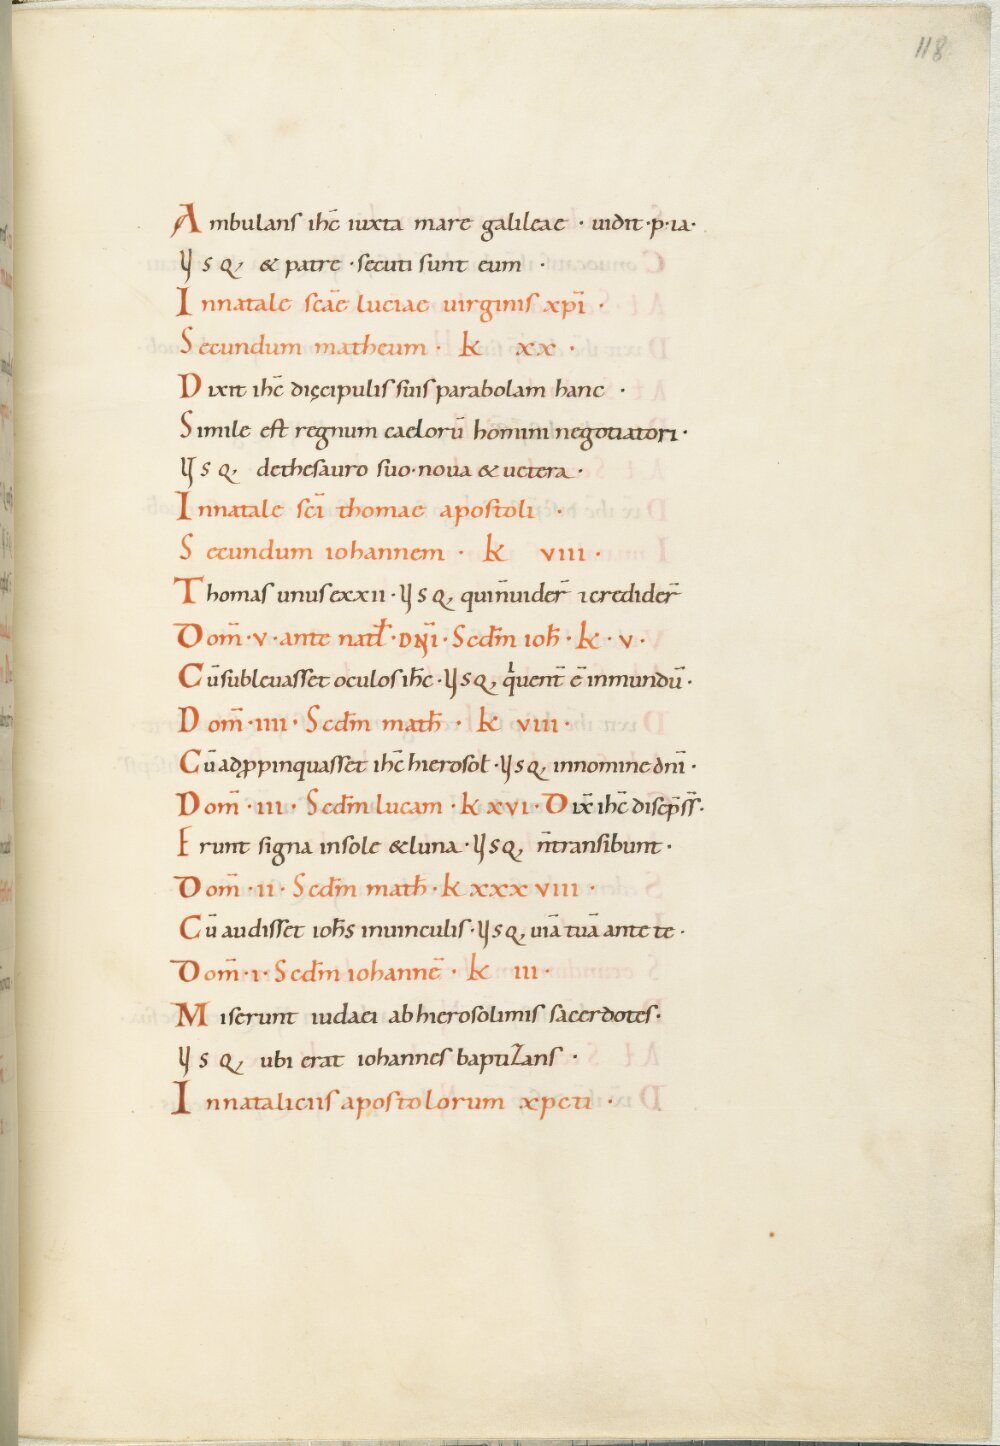 118
Ambulans ihc̄ iuxta mare galileae · uidit · p · ia ·
Usq; & patre · secuti sunt eum ·
Innatale scāe luciae uirginis xpī ·
Secundum matheum · k xx ·
Dixit ihc̄ discipulis suis parabolam hanc ·
Simile est regnum caelorū homini negotiatori ·
Usq; dethesauro suo · noua & uetera ·
Innatale scī thomae apostoli ·
Secundum iohannem · k viii ·
Thomas unus exxii · Usq; quin̄uider̄ &credider̄
Dom̄ · v · ante natł · dnī · Scdm̄ ioh̄ · k · v ·
Cū subleuasset oculos ih̄c · Usq; quent̄ ē inmundū ·
Dom̄ · iiii · Scdm̄ math̄ · k viii ·
Cū adꝓpinquasset ihc̄ hierosoł · Usq; innomine dnī ·
Dom̄ · iii · Scdm̄ lucam · k xvi · Dix̄ ihc̄ discip̄ss̄ ·
Erunt signa insole &luna · Usq; n̄transibunt ·
Dom̄ · ii · Scdm̄ math̄ · k xxxviii ·
Cū audisset ioh̄s inuinculis · Usq; uiā tuā ante te ·
Dom̄ · i · Scdm̄ iohannē · k iii ·
Miserunt iudaei ab hierosolimis sacerdotes ·
Usq; ubi erat iohannes baptizans ·
Innataliciis apostolorum xpcti ·